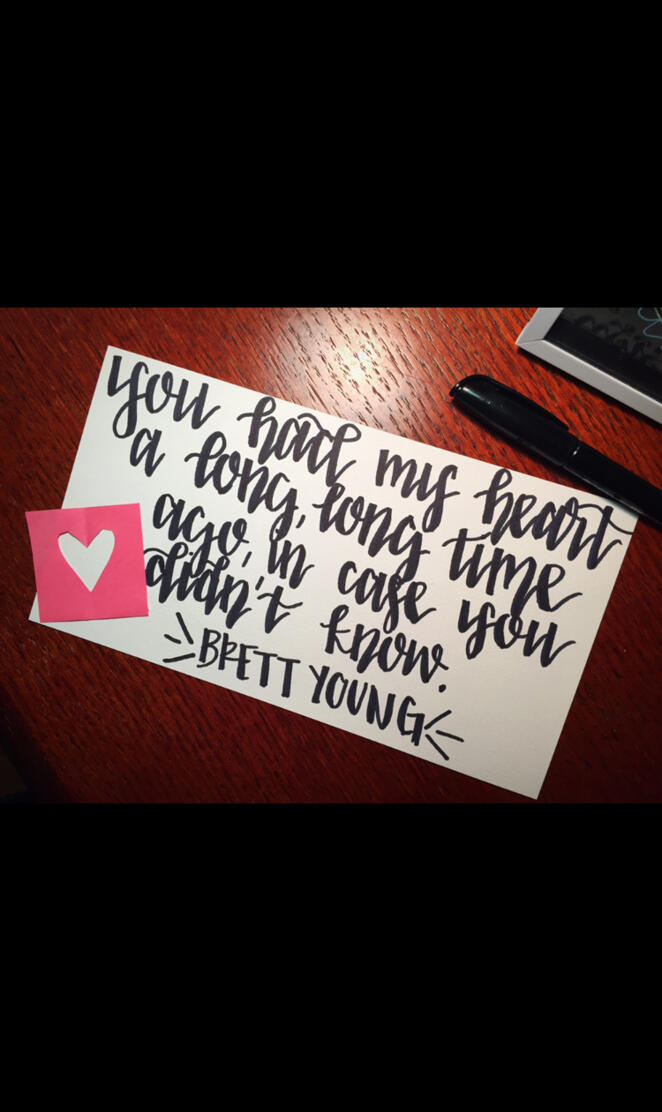 you had my heart
a long, long time
ago, in case you
didn't know.
BRETT YOUNG